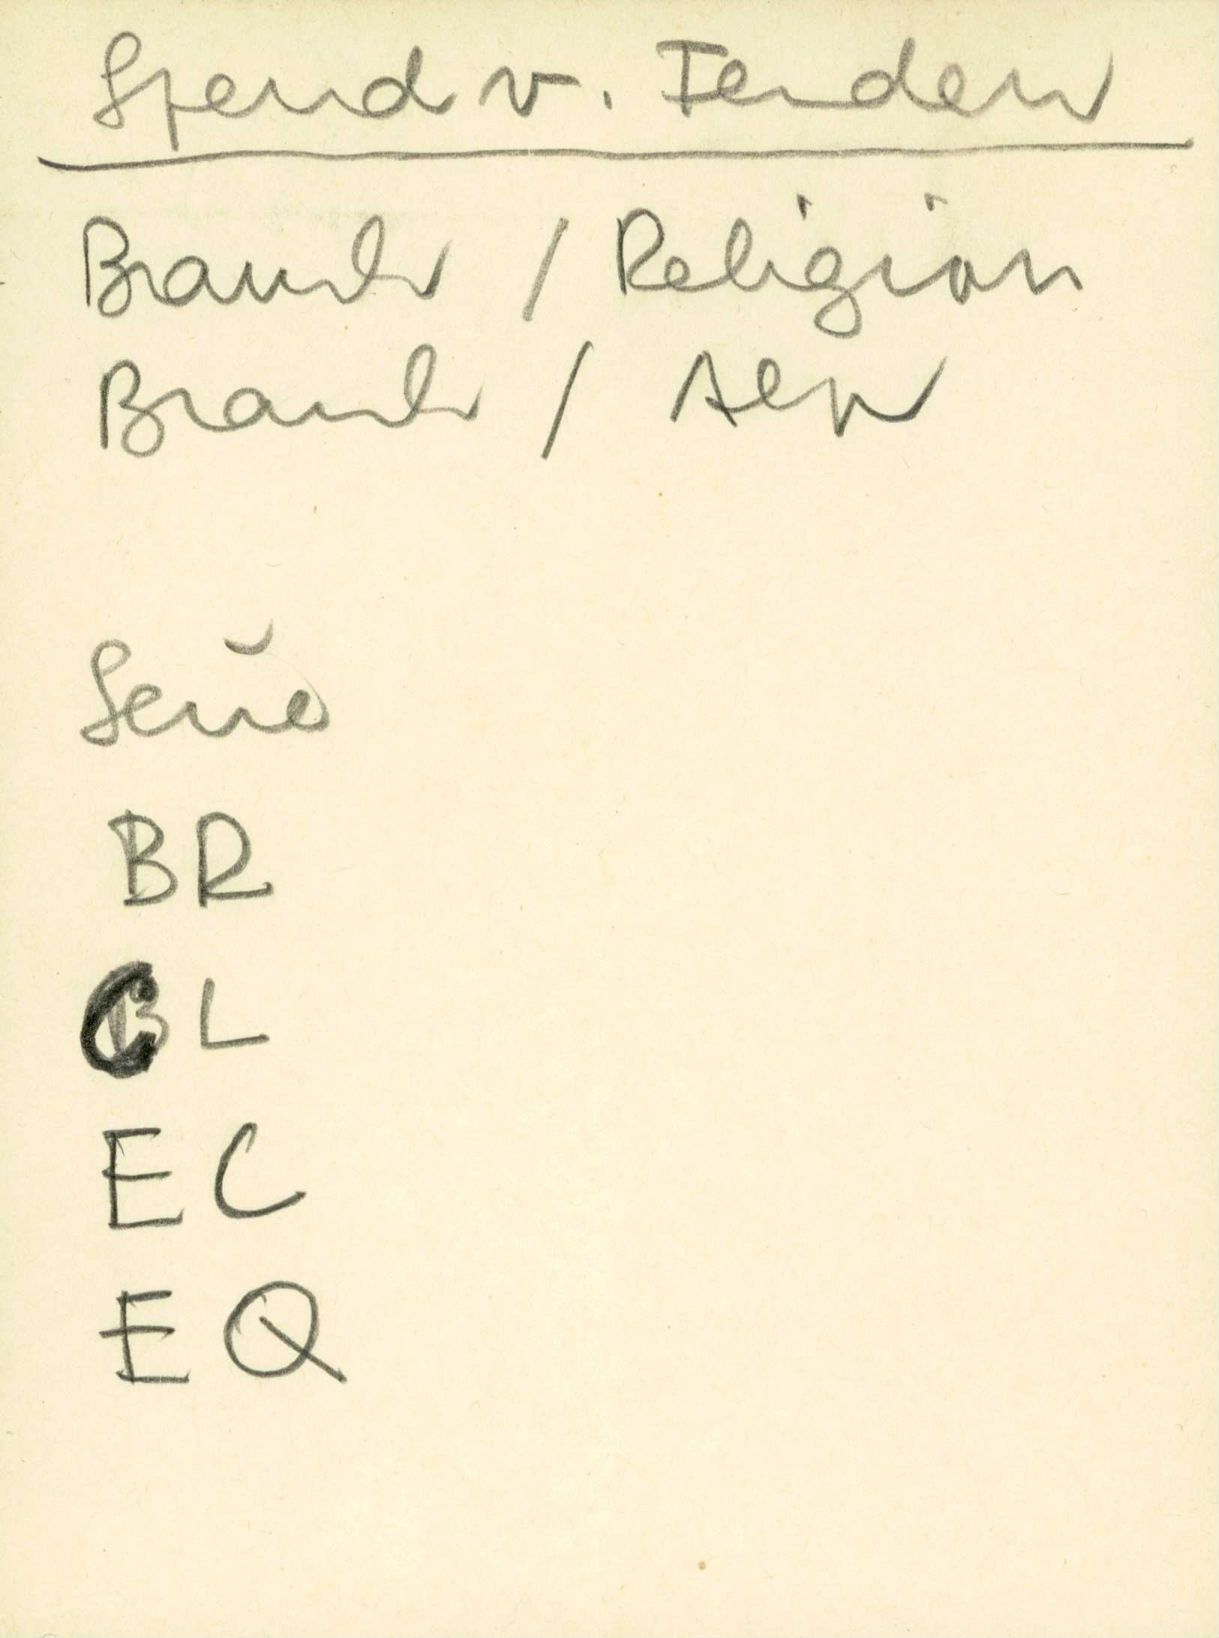 Spend v. Tenden
Brauch / Religion
Brauch / Alp
BR
CL
EC
EQ